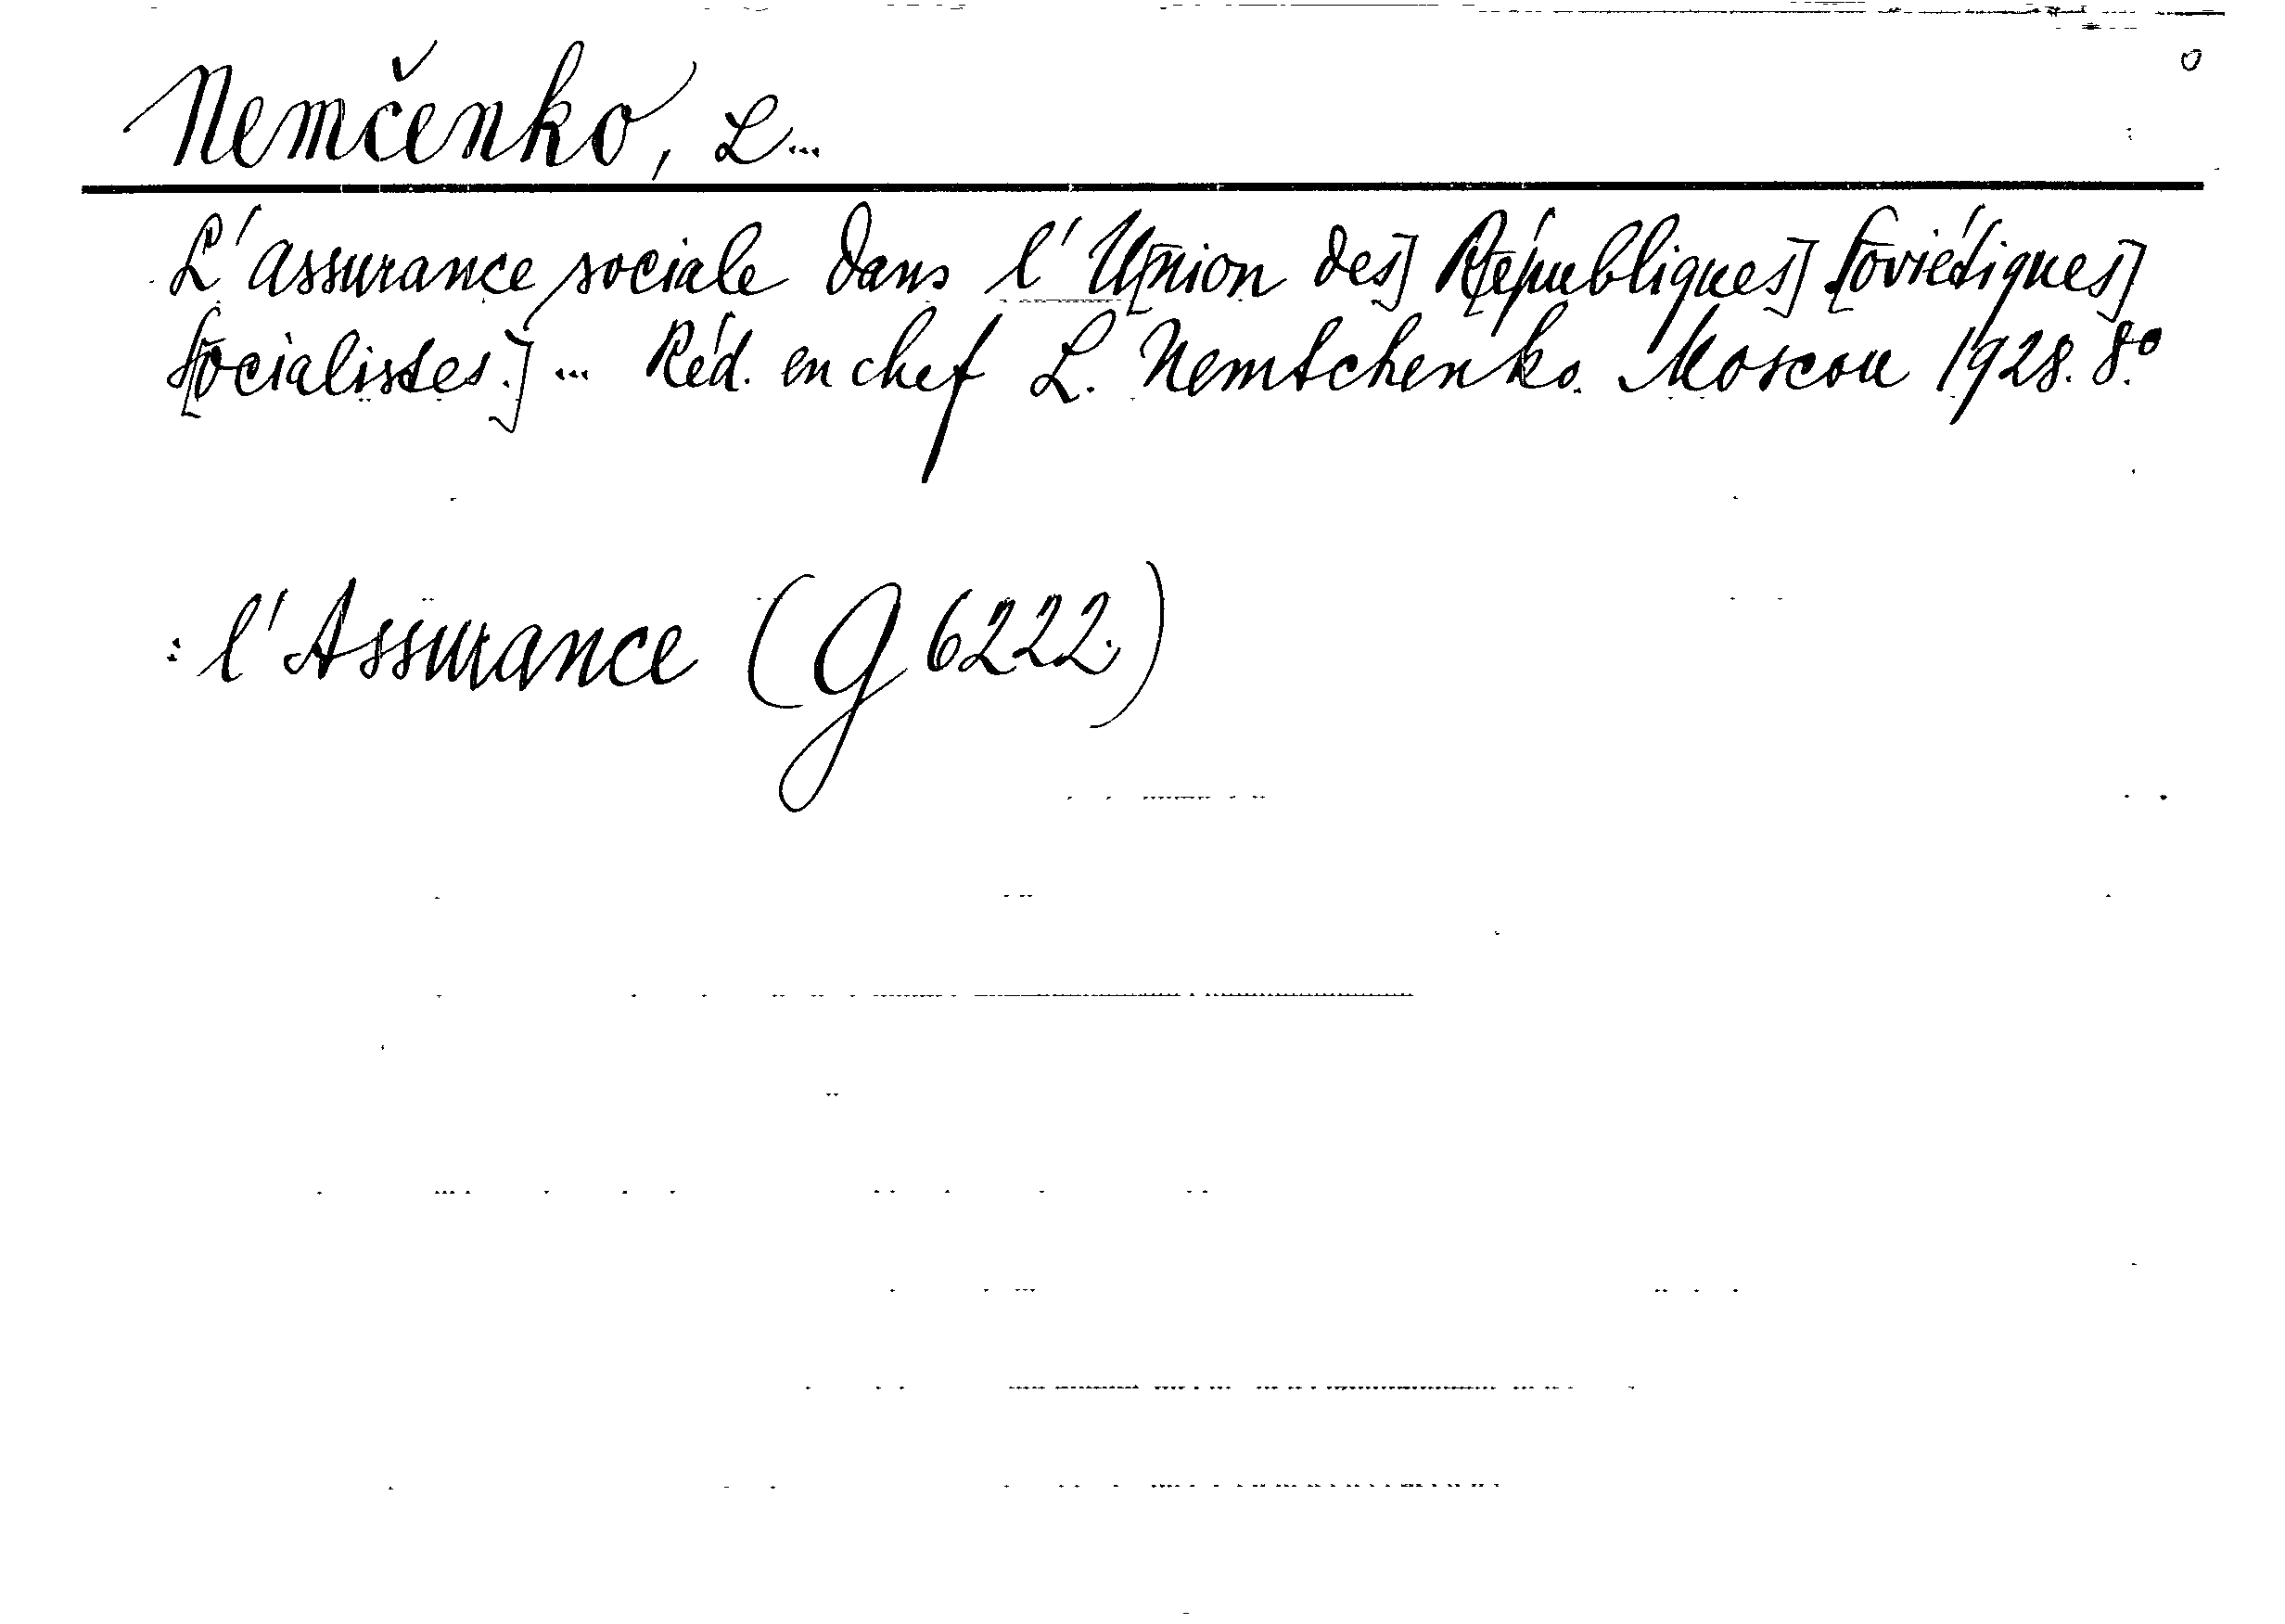 Nemčenko, L...
L'assurance sociale dans l'U[nion des] R[épubliques] S[oviétiques]
S[ocialistes.] ... Réd. en chef L. Nemtchenko. Moscou 1928. 8.º
: l'Assurance (G 6222.)